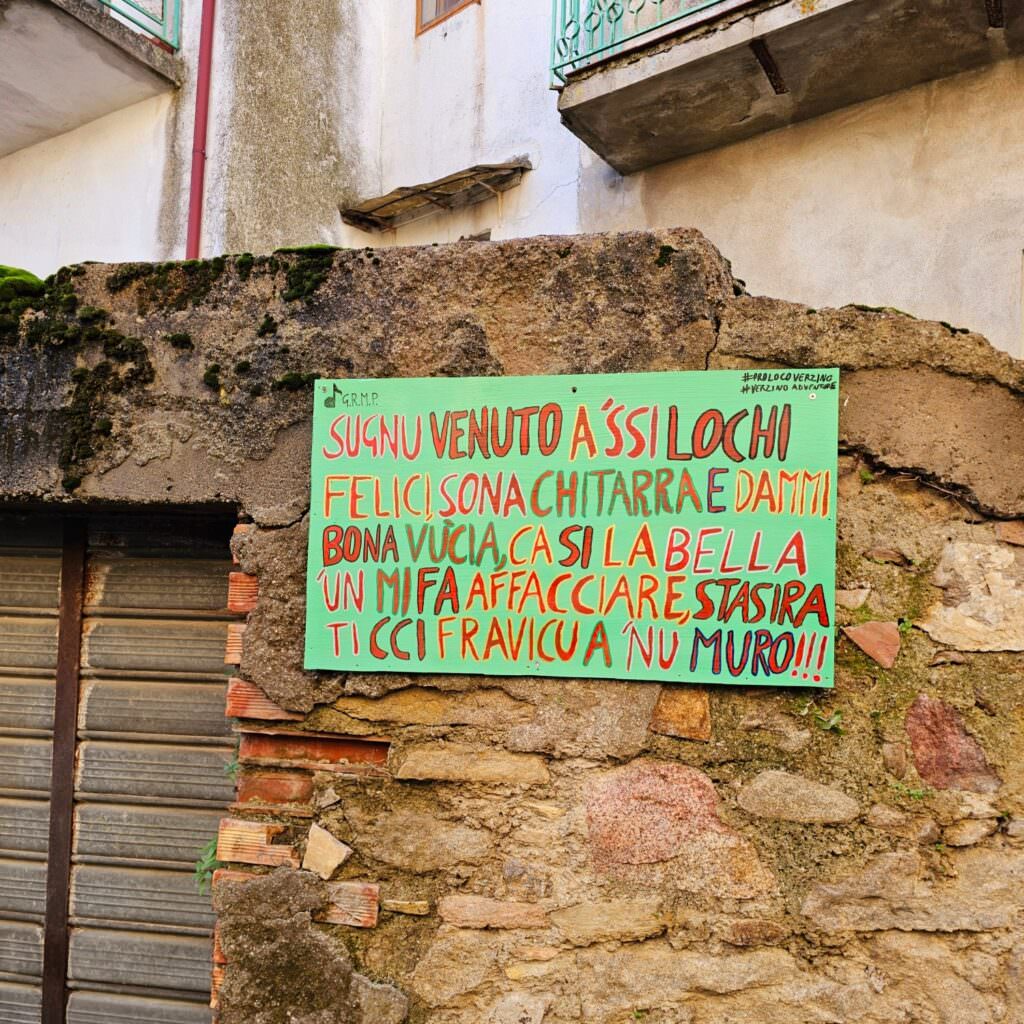 G.R.M.P.
#PROLOCOVERZINO
#VERZINO ADVENTURE
SUGNU VENUTO A 'SSI LOCHI
FELICI, SONA CHITARRA E DAMMI
BONA VÙCIA, CA SI LA BELLA
'UN MI FA AFFACCIARE, STASIRA
TI CCI FRAVICU A 'NU MURO!!!